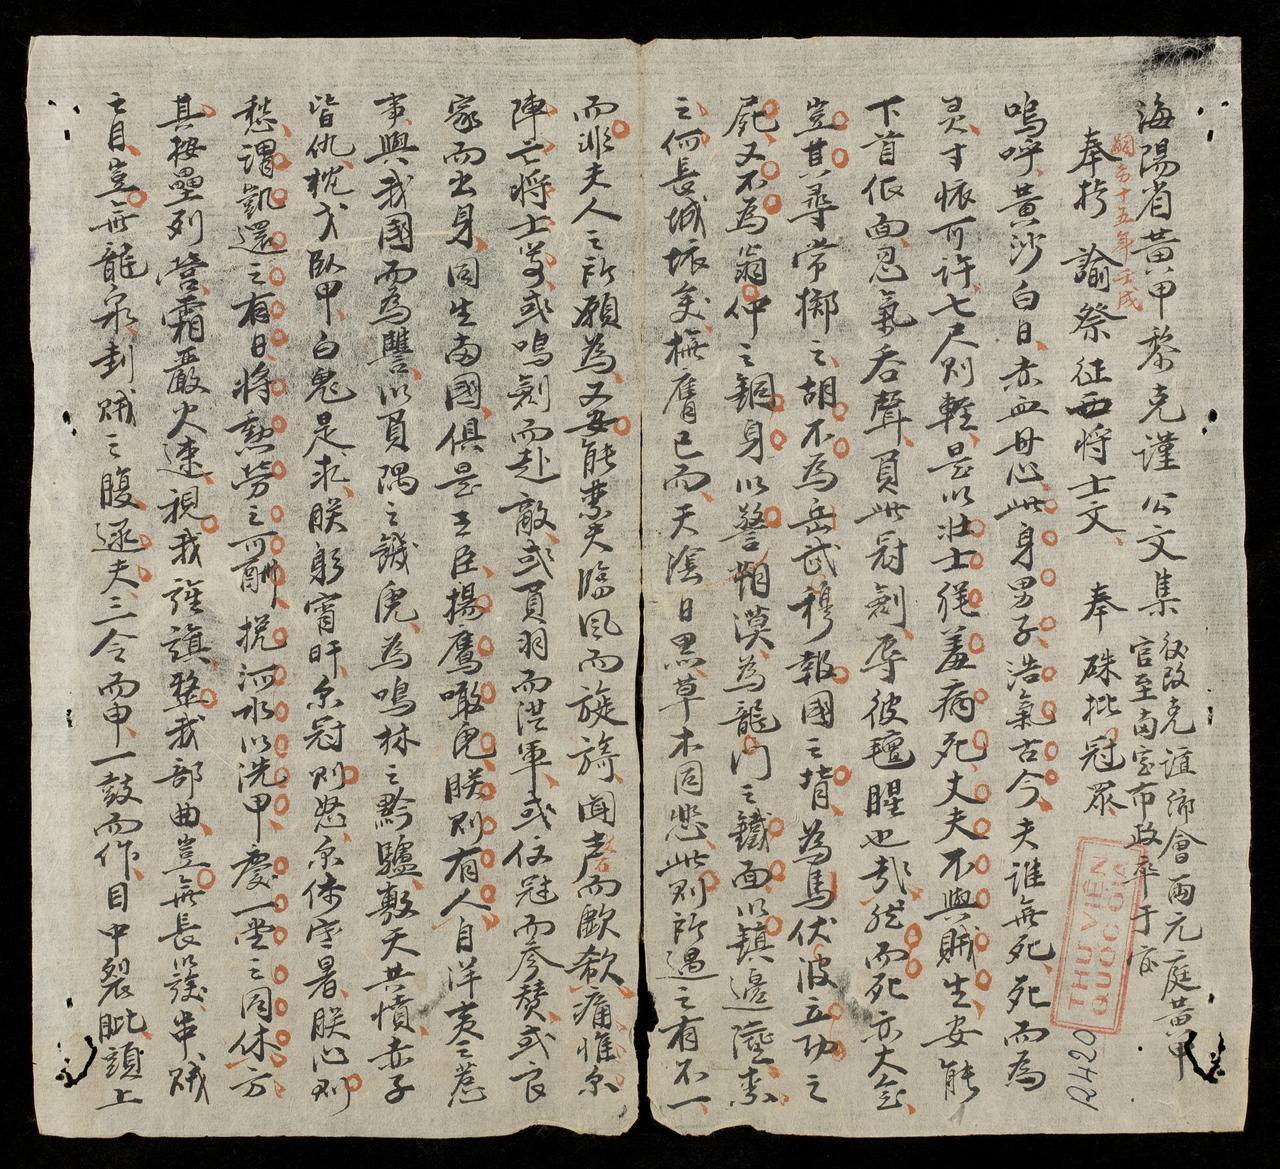 海陽省黃甲黎克謹公文集
後改克誼鄉會兩元庭黃甲
官至南定布政卒于官
嗣德十五年壬戌
奉擬 諭祭征西將士文 奉 硃批冠眾
嗚呼黃沙白日赤血丹心此身男子浩氣古今夫誰無死死而為
灵寸恢可許七尺則輕是以壯士羞病死丈夫不與賊生安能
下首低面忍氣吞聲負此冠劍辱彼羶腥也哉然而死亦大矣
豈其尋常擲之胡不為岳武穆報國之背為馬伏波立功之
屍又不為翁仲之銅身以警朔漠為龍門之鐵面以鎮邊陲柰
之何長城垓矣撫膺已而天陰日黑草木同悲此則所遇之有不一
而非夫人之所願為又安能禁夫臨風而旋旆聞聲而歔欷痛惟尔
陣亡將士等或鳴劍而赴敵或負羽而從軍或仗冠而參贊或官
家而出身同生南國俱是王臣揚鷹噉虎朕則有人自洋夷之惹
事與我國而為讐以負隅之餓虎為鳴林之黔驢敷天共憤赤子
皆仇枕戈臥甲白鬼是求朕躬宵旰尔冠則怒尔体寒暑朕心則
愁謂凱還之有日將勲勞之可酬挽河水以洗甲慶一堂之同休方
其按壘列營霜嚴火速視我旌旗整我部曲豈無長以護串賊
之目豈無龍泉刲賊之腹逐夫三令而申一鼓而作目中裂眦頭上
THƯ VIỆN
QUỐC GIA
R420